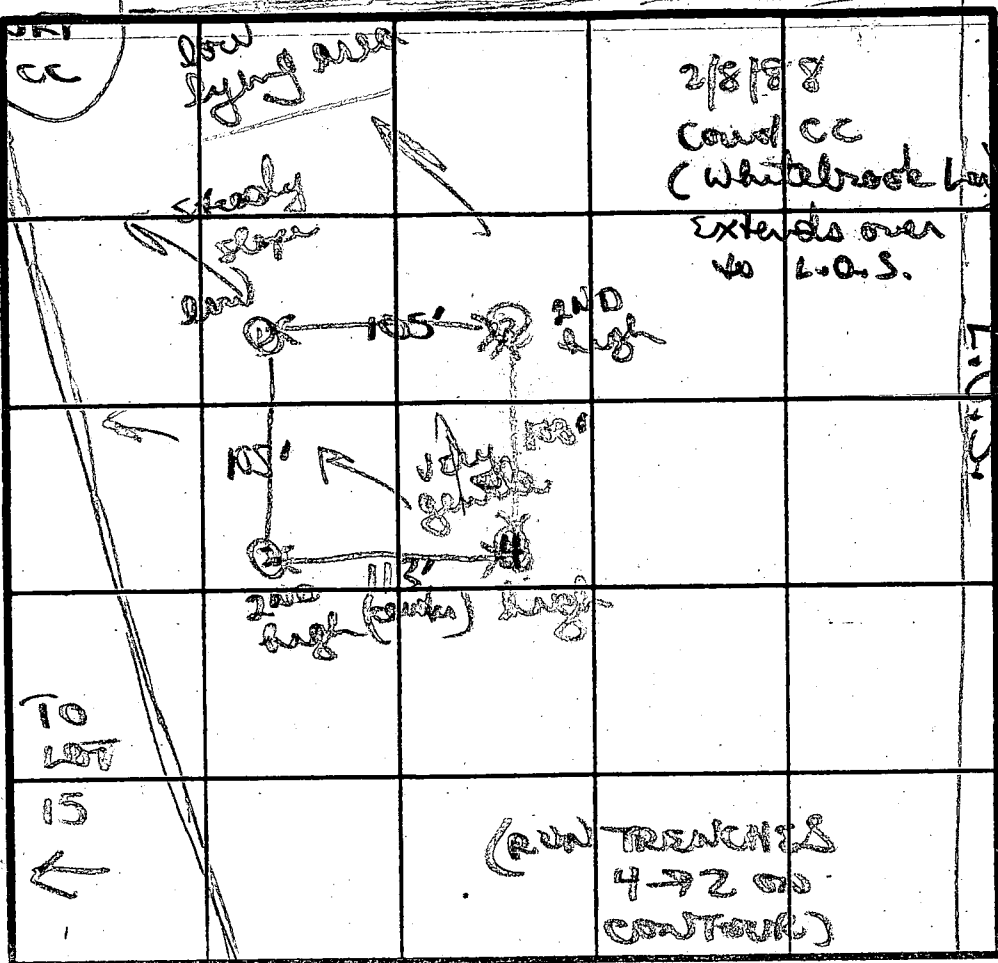 CC
low
lying area
2/8/88
CC
(Whitebrook
Extends over
to L.O.S.
steady
slope
low
105'
2ND
high
105'
very
gentle
4
2
2ND
high
high
TO
LOT
15
(RUN TRENCHES
4→2 on
CONTOUR)